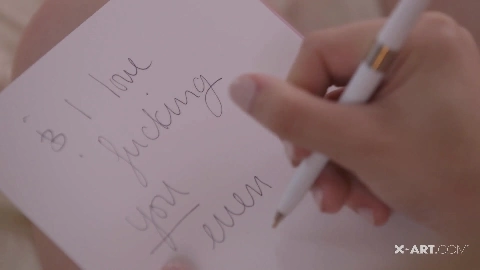 I love
fucking
you
even
X-ART.COM